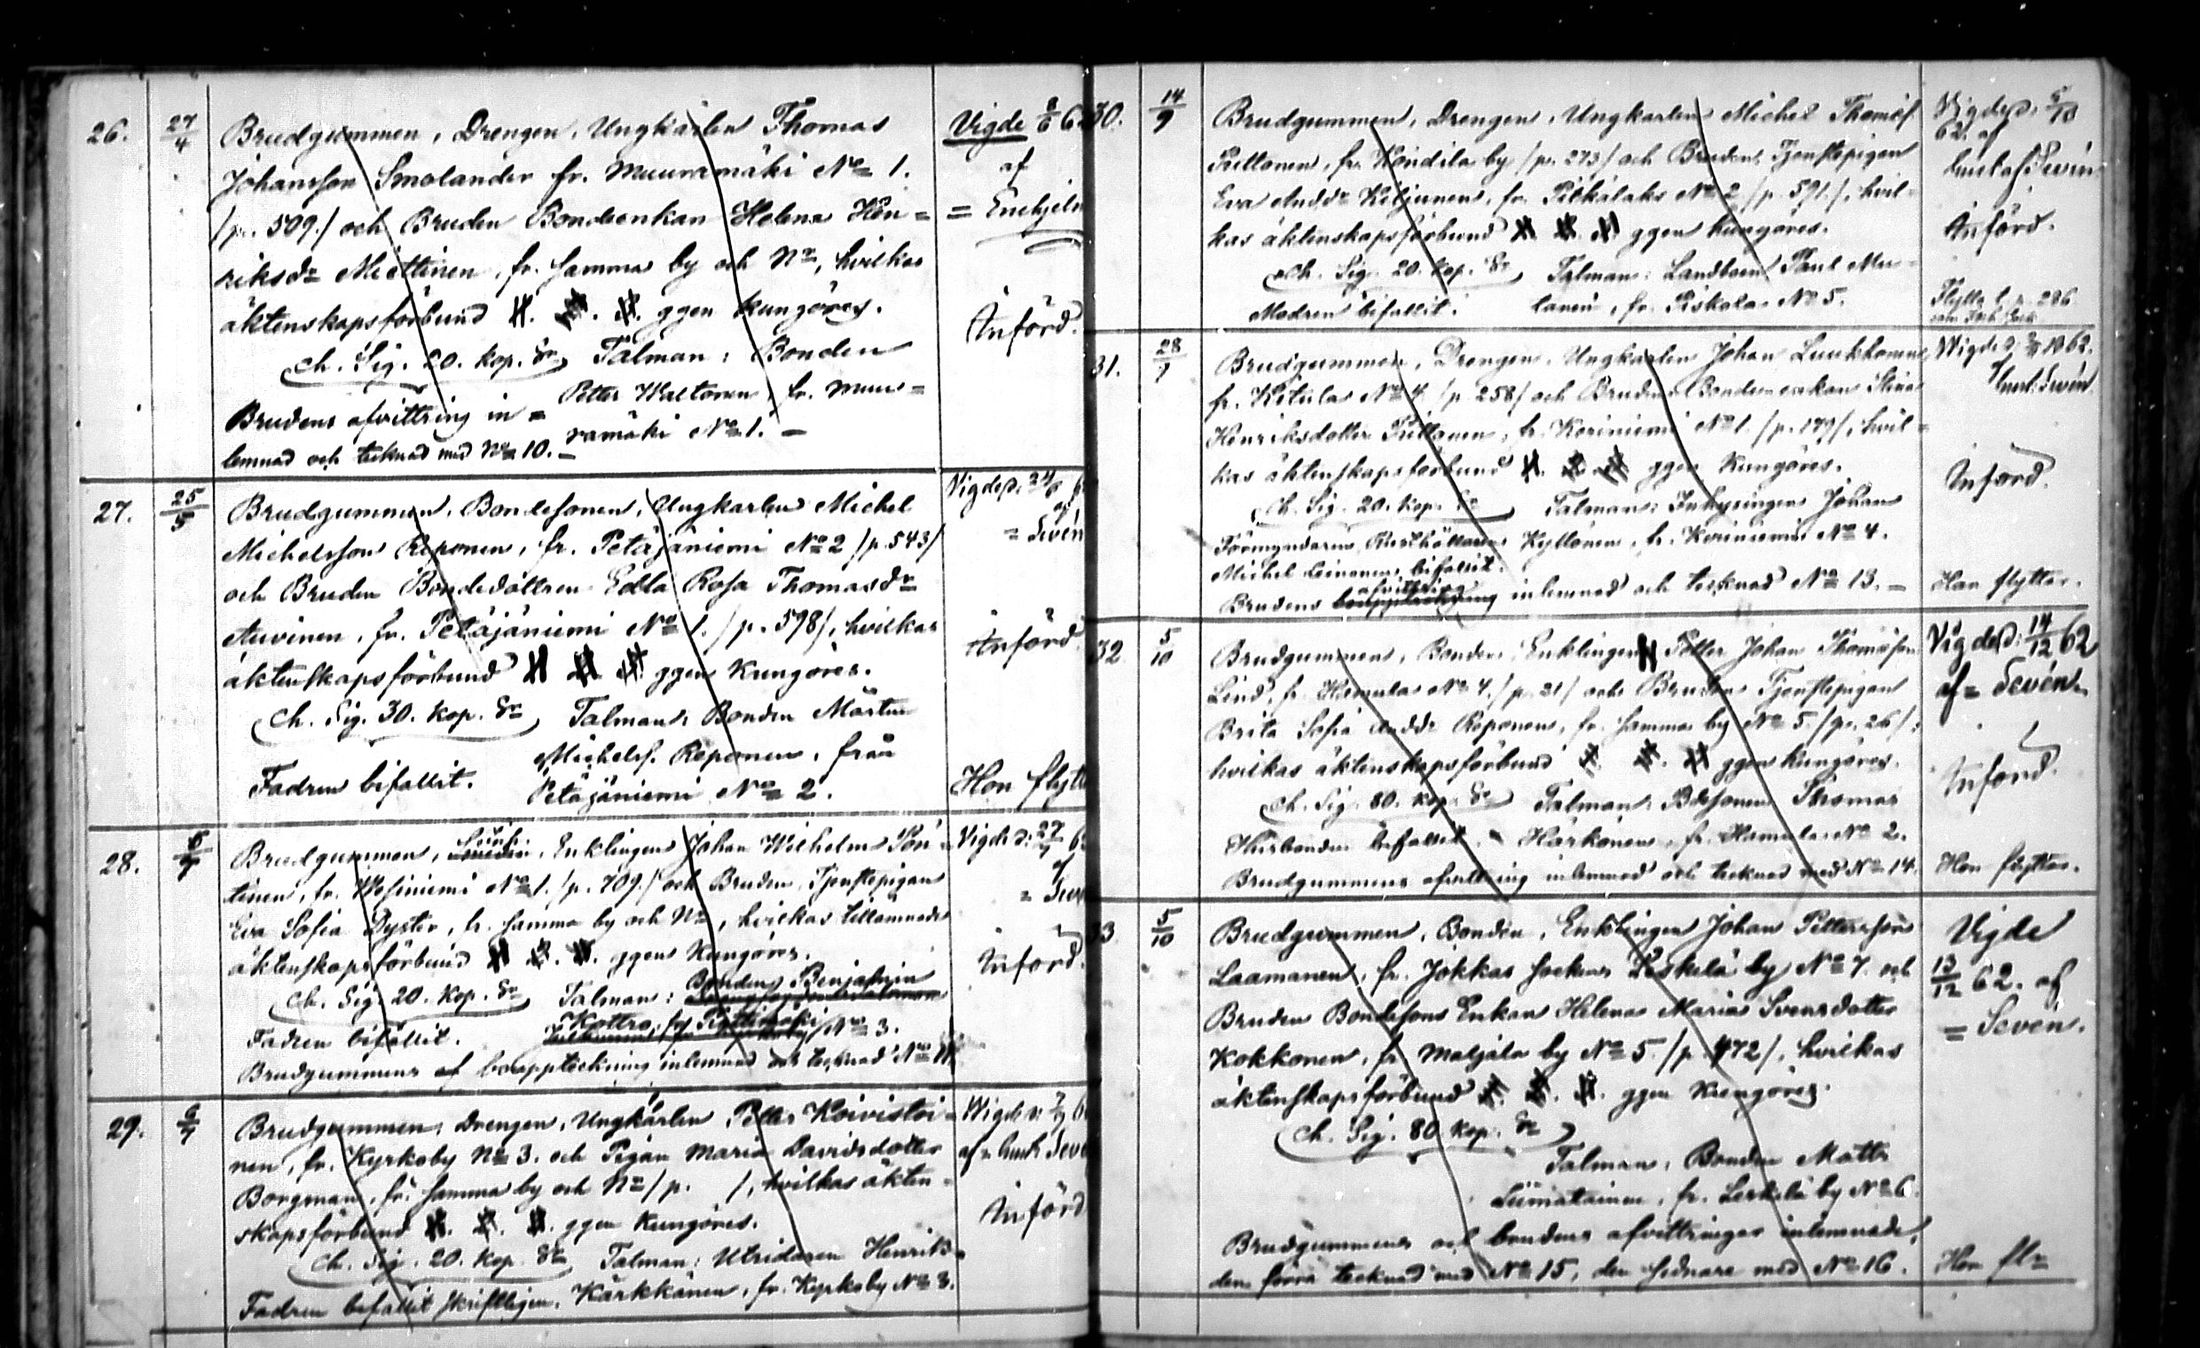 26. 27/4 Brudgummen, Drengen, Ungkarlen Thomas
Johansson Smolander fr. Muuramäki No 1.
/p. 509./ och Bruden Bondeenkan Helena Hen=
riksdr Miettinen, fr. samma by och No, hvilkas
äktenskapsförbund I. II. III. ggen kungöres.
Ch. Sig. 20. kop. Sr Talman: Bonden
Petter Waltonen, fr. Muu=
Brudens afvittring in=
ramäki No 1. —
lemnad och tecknad med No 10. —
Vigde 8/6 62
af
= Enehjelm
Införd.
27. 25/5 Brudgummen, Bondesonen, Ungkarlen Michel
Michelsson Reponen, fr. Petäjäniemi No 2 /p. 543/
och Bruden Bondedottren Edla Rosa Thomasdr
Auvinen, fr. Petäjäniemi No 1. /p. 598/, hvilkas
äktenskapsförbund I. II. III. ggen kungöres.
Ch. Sig. 30. kop. Sr Talman: Bonden Mårten
Michelss. Reponen, från
Fadren bifallit.
Petäjäniemi No 2.
Vigde d. 24/6
af
= Sevén
Införd
Hon flytt
28. 6/7 Brudgummen, Enklingen Johan Wilhelm Pön=
tinen, fr. Wesiniemi No 1. /p. 709./ och Bruden, Tjenstepigan
Eva Sofia Dyster, fr. samma by och No, hvilkas tillämnade
äktenskapsförbund I. II. III. ggen kungöres.
Ch. Sig. 20. kop. Sr Talman: Bonden Benjamin
Fadren bifallit.
Kottro, fr. No 3.
Brudgummens bouppteckning inlemnad och tecknad No 11.
Vigde d: 27/7
af
Införd.
29. 6/7 Brudgummen, Drengen, Ungkarlen Petter Koivistoi=
nen, fr. Kyrkoby No 3. och Pigan Maria Davidsdotter
Borgman, fr. samma by och No /p. /, hvilkas äkten=
skapsförbund I. II. III. ggen kungöres.
Ch. Sig. 20. kop. Sr Talman: Utridaren Henrik
Fadren bifallit skriftligen. Kärkkänen, fr. Kyrkoby No 3.
Vigde
af
Införd
30. 14/9 Brudgummen, Drengen, Ungkarlen Michel Thomass.
Puttonen, fr. Kondila by /p. 273/ och Bruden, Tjenstepigan
Eva Andsdr Kiljunen, fr. Pilkälaks No 2 /p. 591./, hvil=
kas äktenskapsförbund I. II. III. ggen kungöres.
Ch. Sig. 20. kop. Sr Talman: Landbonden Paul Mu=
Modren bifallit. lanen, fr. Piskola No 5.
Vigde d. 5/10
62. af
Införd.
p. 286
31. 28/9 Brudgummen, Drengen, Ungkarlen Johan Luukkonen,
fr. Kitula No 4. /p. 258/ och Bruden Bondeenkan Stina
Henriksdotter Puttonen, fr. Koriniemi No 1. /p. 179/, hvil=
kas äktenskapsförbund I. II. III. ggen kungöres.
Ch. Sig. 20. kop. Sr Talman: Inhysingen Johan
Förmyndaren, Rusthållaren Kyllönen, fr. Koriniemi No 4.
Michel Leinonen, bifallit.
Brudens afvittring inlemnad och tecknad No 13. —
Vigde d. 1862.
Sevén.
Införd.
Han flyttar.
32. 5/10 Brudgummen, Bonden, Enklingen Petter Johan Thomasson
Lind, fr. Hamula No 4. /p. 21/ och Bruden Tjenstepigan
Brita Sofia Andsdr Reponen, fr. samma by No 5. /p. 26/,
hvilkas äktenskapsförbund I. II. III. ggen kungöres.
Ch. Sig. 80. kop. Sr Talman: Bdesonen Thomas
Husbonden bifallit. Härkönen, fr. Hamula No 2.
Brudgummens afvittring inlemnad och tecknad med No 14.
Vigde d: 14/12 62
af = Sevén
Införd.
Hon flyttar.
33. 5/10 Brudgummen, Bonden, Enklingen Johan Pettersson
Laamanen, fr. Jokkas socken Leskelä by No 7. och
Bruden Bondesons Enkan Helena Maria Svensdotter
Kokkonen, fr. Maljala by No 5. /p. 472/, hvilkas
äktenskapsförbund I. II. III. ggen kungöres.
Ch. Sig. 80 kop. Sr
Talman: Bonden Matts
Siimatainen, fr. Leskelä by No 6.
Brudgummens och brudens afvittringar inlemnade,
den förra tecknad med No 15, den sednare med No 16.
Vigde
13/12 62. af
= Sevén.
Hon fl=